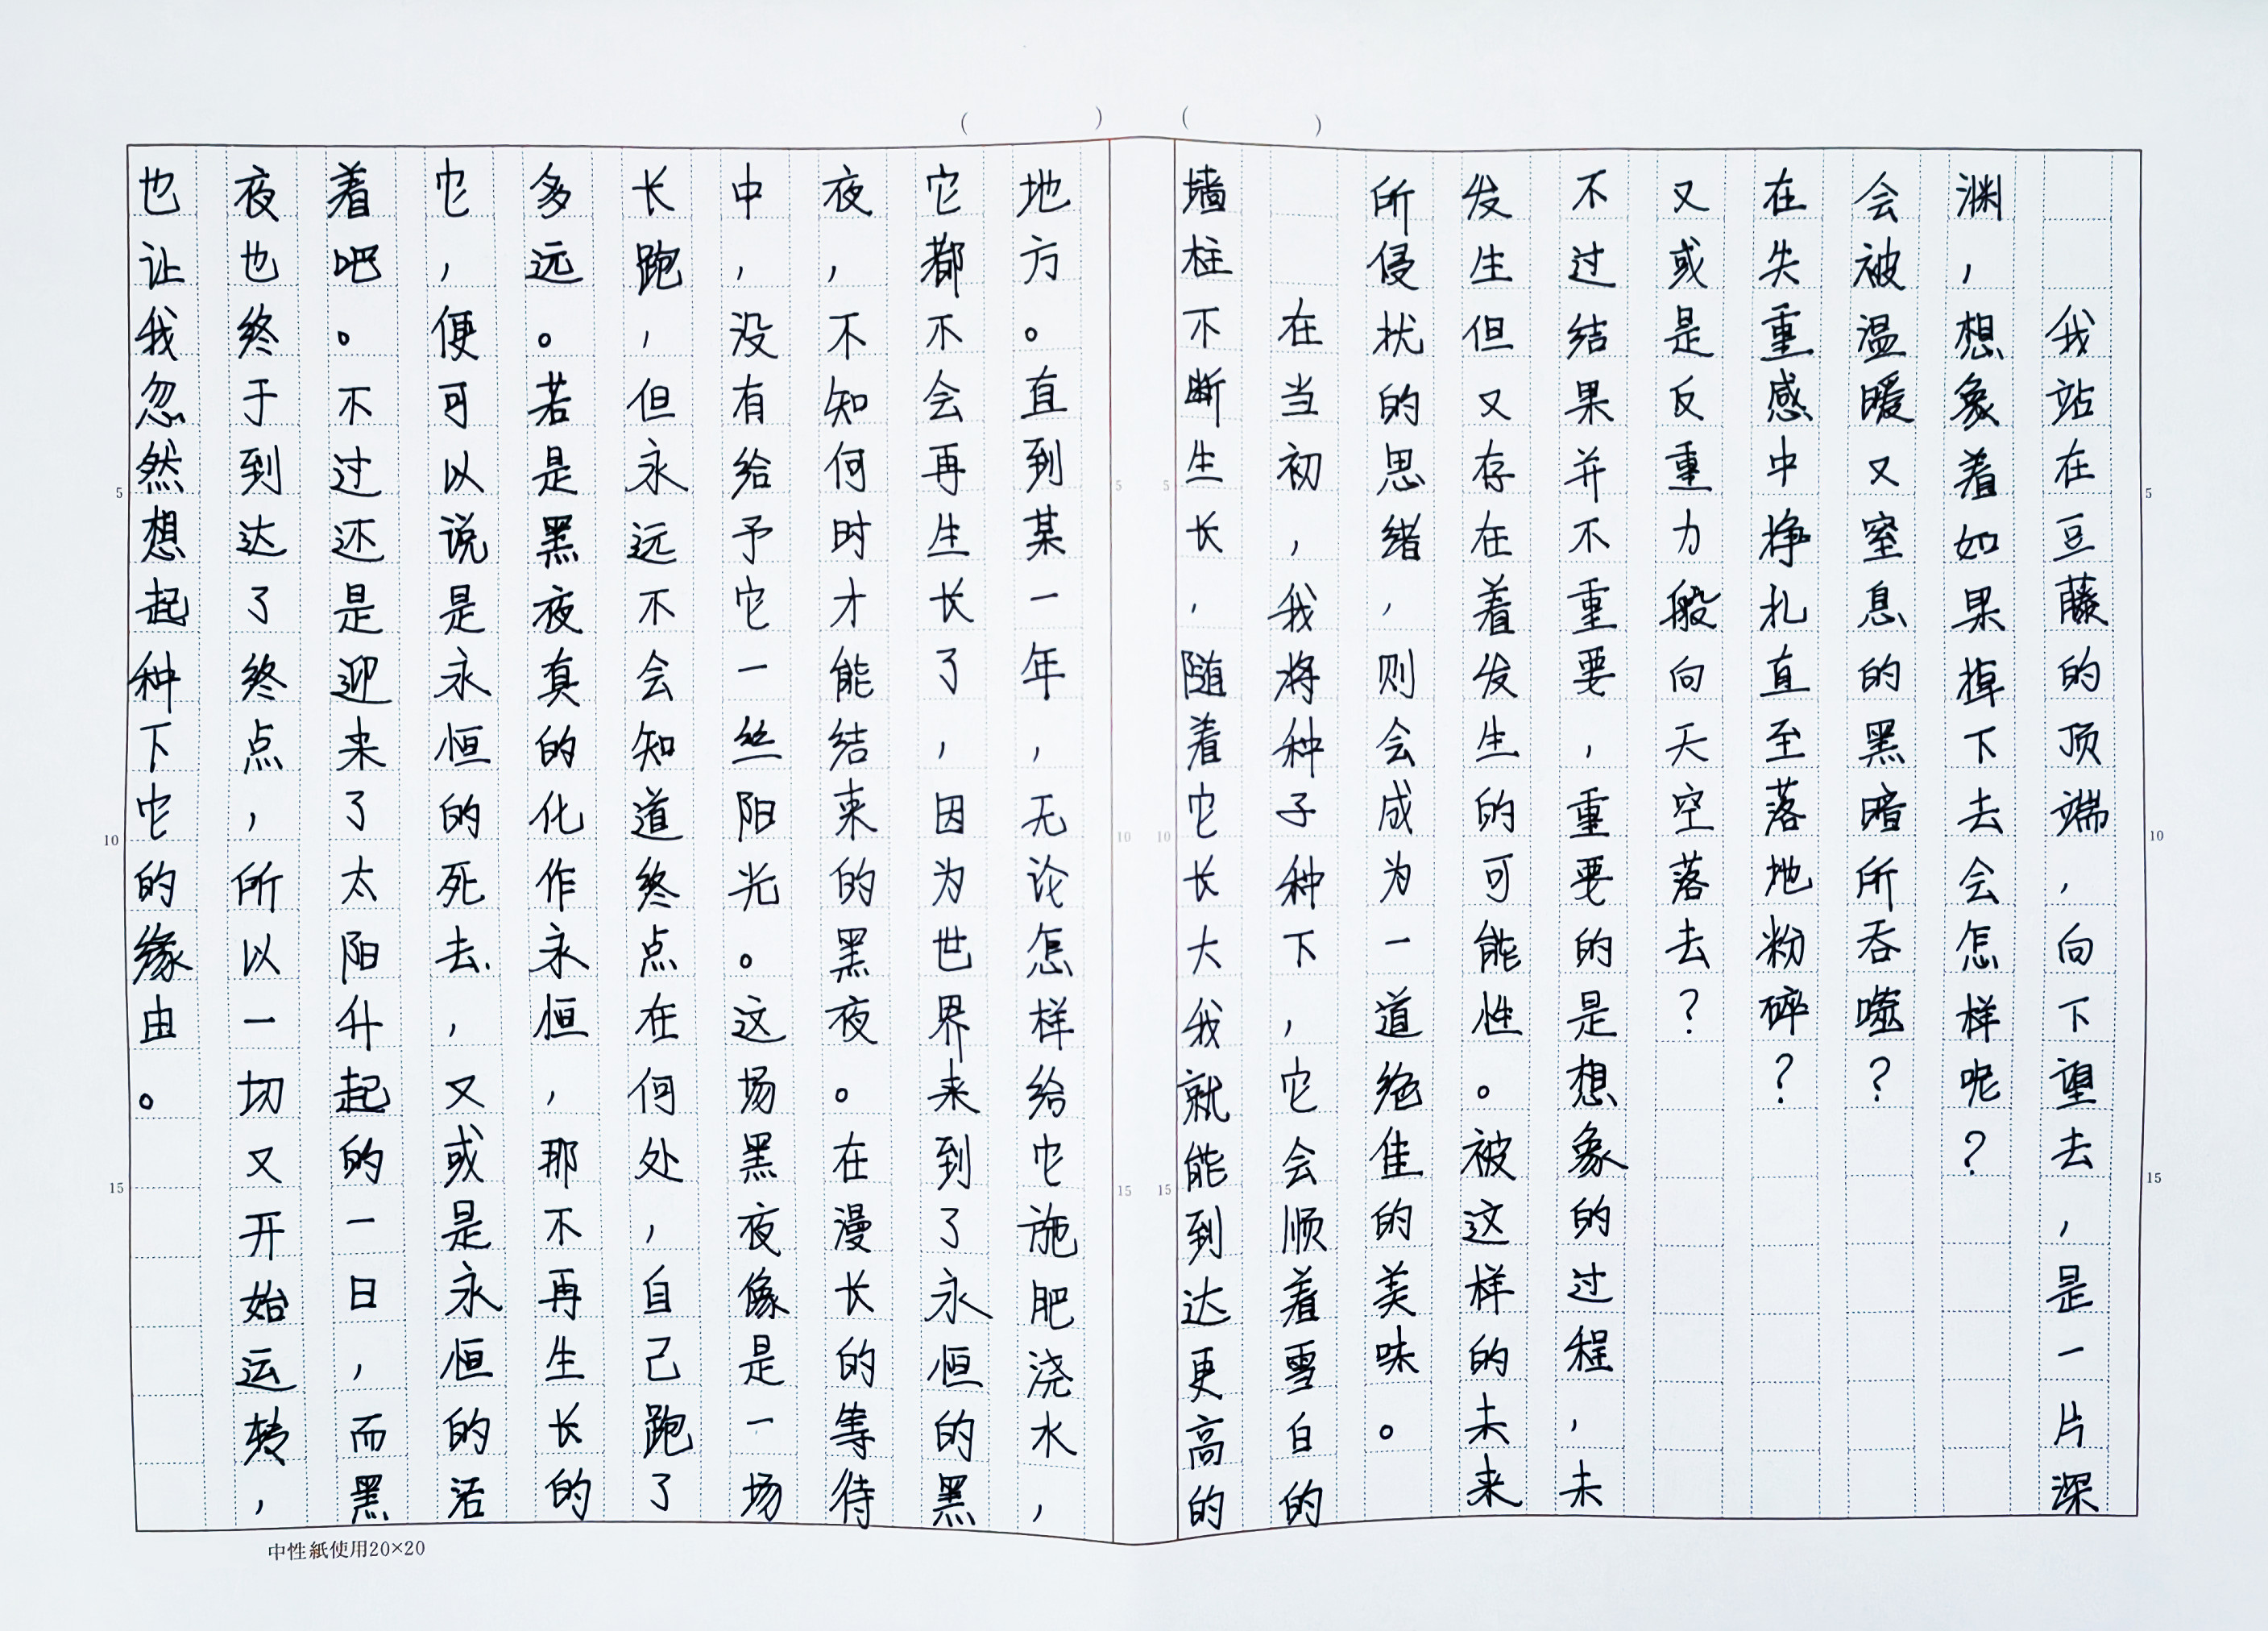 （　　　）（　　　）
我站在豆藤的顶端，向下望去，是一片深
渊，想象着如果掉下去会怎样呢？
会被温暖又窒息的黑暗所吞噬？
在失重感中挣扎直至落地粉碎？
又或是反重力般向天空落去？
不过结果并不重要，重要的是想象的过程，未
发生但又存在着发生的可能性。被这样的未来
所侵扰的思绪，则会成为一道绝佳的美味。
在当初，我将种子种下，它会顺着雪白的
墙柱不断生长，随着它长大我就能到达更高的
地方。直到某一年，无论怎样给它施肥浇水，
它都不会再生长了，因为世界来到了永恒的黑
夜，不知何时才能结束的黑夜。在漫长的等待
中，没有给予它一丝阳光。这场黑夜像是一场
长跑，但永远不会知道终点在何处，自己跑了
多远。若是黑夜真的化作永恒，那不再生长的
它，便可以说是永恒的死去，又或是永恒的活
着吧。不过还是迎来了太阳升起的一日，而黑
夜也终于到达了终点，所以一切又开始运转，
也让我忽然想起种下它的缘由。
5
10
15
5
10
15
5
10
15
5
10
15
中性紙使用20×20